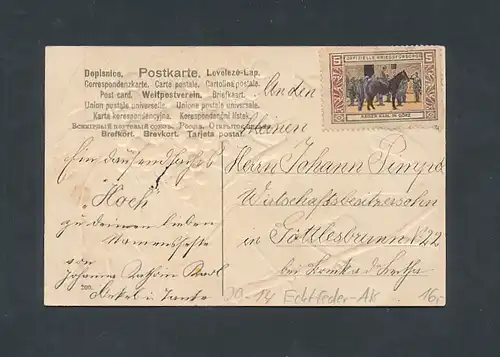 Dopisnice. Postkarte. Levelezö-Lap.
Correspondenzkarte. Carte postale. Cartolina postale.
Post card. Weltpostverein. Briefkaart.
Union postale universelle. Unione postale universale.
Karta korespondencyjna. Korespondenční lístek.
Brefkort. Brevkort. Tarjeta postal.
OFFIZIELLE KRIEGSFÜRSORGE
5 5
KAISER KARL IN GÖRZ
An den
kleinen
Herrn Johann
Wirtschaftsbesitzerssohn
in Göttlesbrunn N. 22
bei Bruck a d Leitha
Ein tausendfach
"Hoch"
zu deinem lieben
Namensfeste
von
Johanna Karl
Onkel u. Tante
29.-14 Echtfeder-AK
16,-